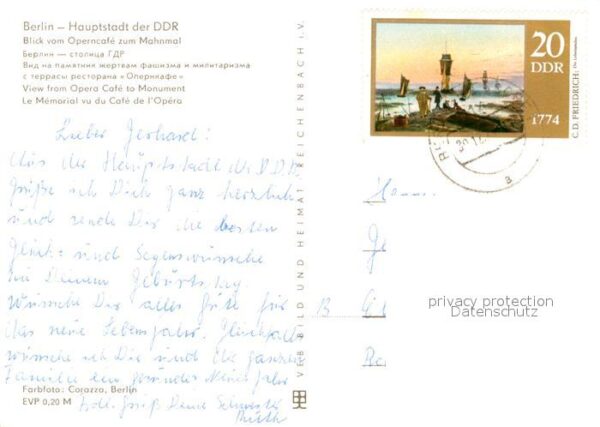 Berlin – Hauptstadt der DDR
Blick vom Operncafé zum Mahnmal
Берлин — столица ГДР
Вид на памятник жертвам фашизма и милитаризма
с террасы ресторана «Опернкафе»
View from Opera Café to Monument
Le Mémorial vu du Café de l'Opéra
Lieber Gerhard!
Aus der Hauptstadt d. DDR
grüße ich Dich ganz herzlich
und sende Dir die besten
Glück- und Segenswünsche
zu Deinem Geburtstag.
Wünsche Dir alles Gute für
das neue Lebensjahr. Gleichfalls
wünsche ich Dir und der ganzen
Familie ein gesundes Neues Jahr
Farbfoto: Corazza, Berlin
EVP 0,20 M
Deine Schwester
Ruth
VEB BILD UND HEIMAT REICHENBACH i.V.
20
DDR
1774
C.D. FRIEDRICH:
B
privacy protection
Datenschutz